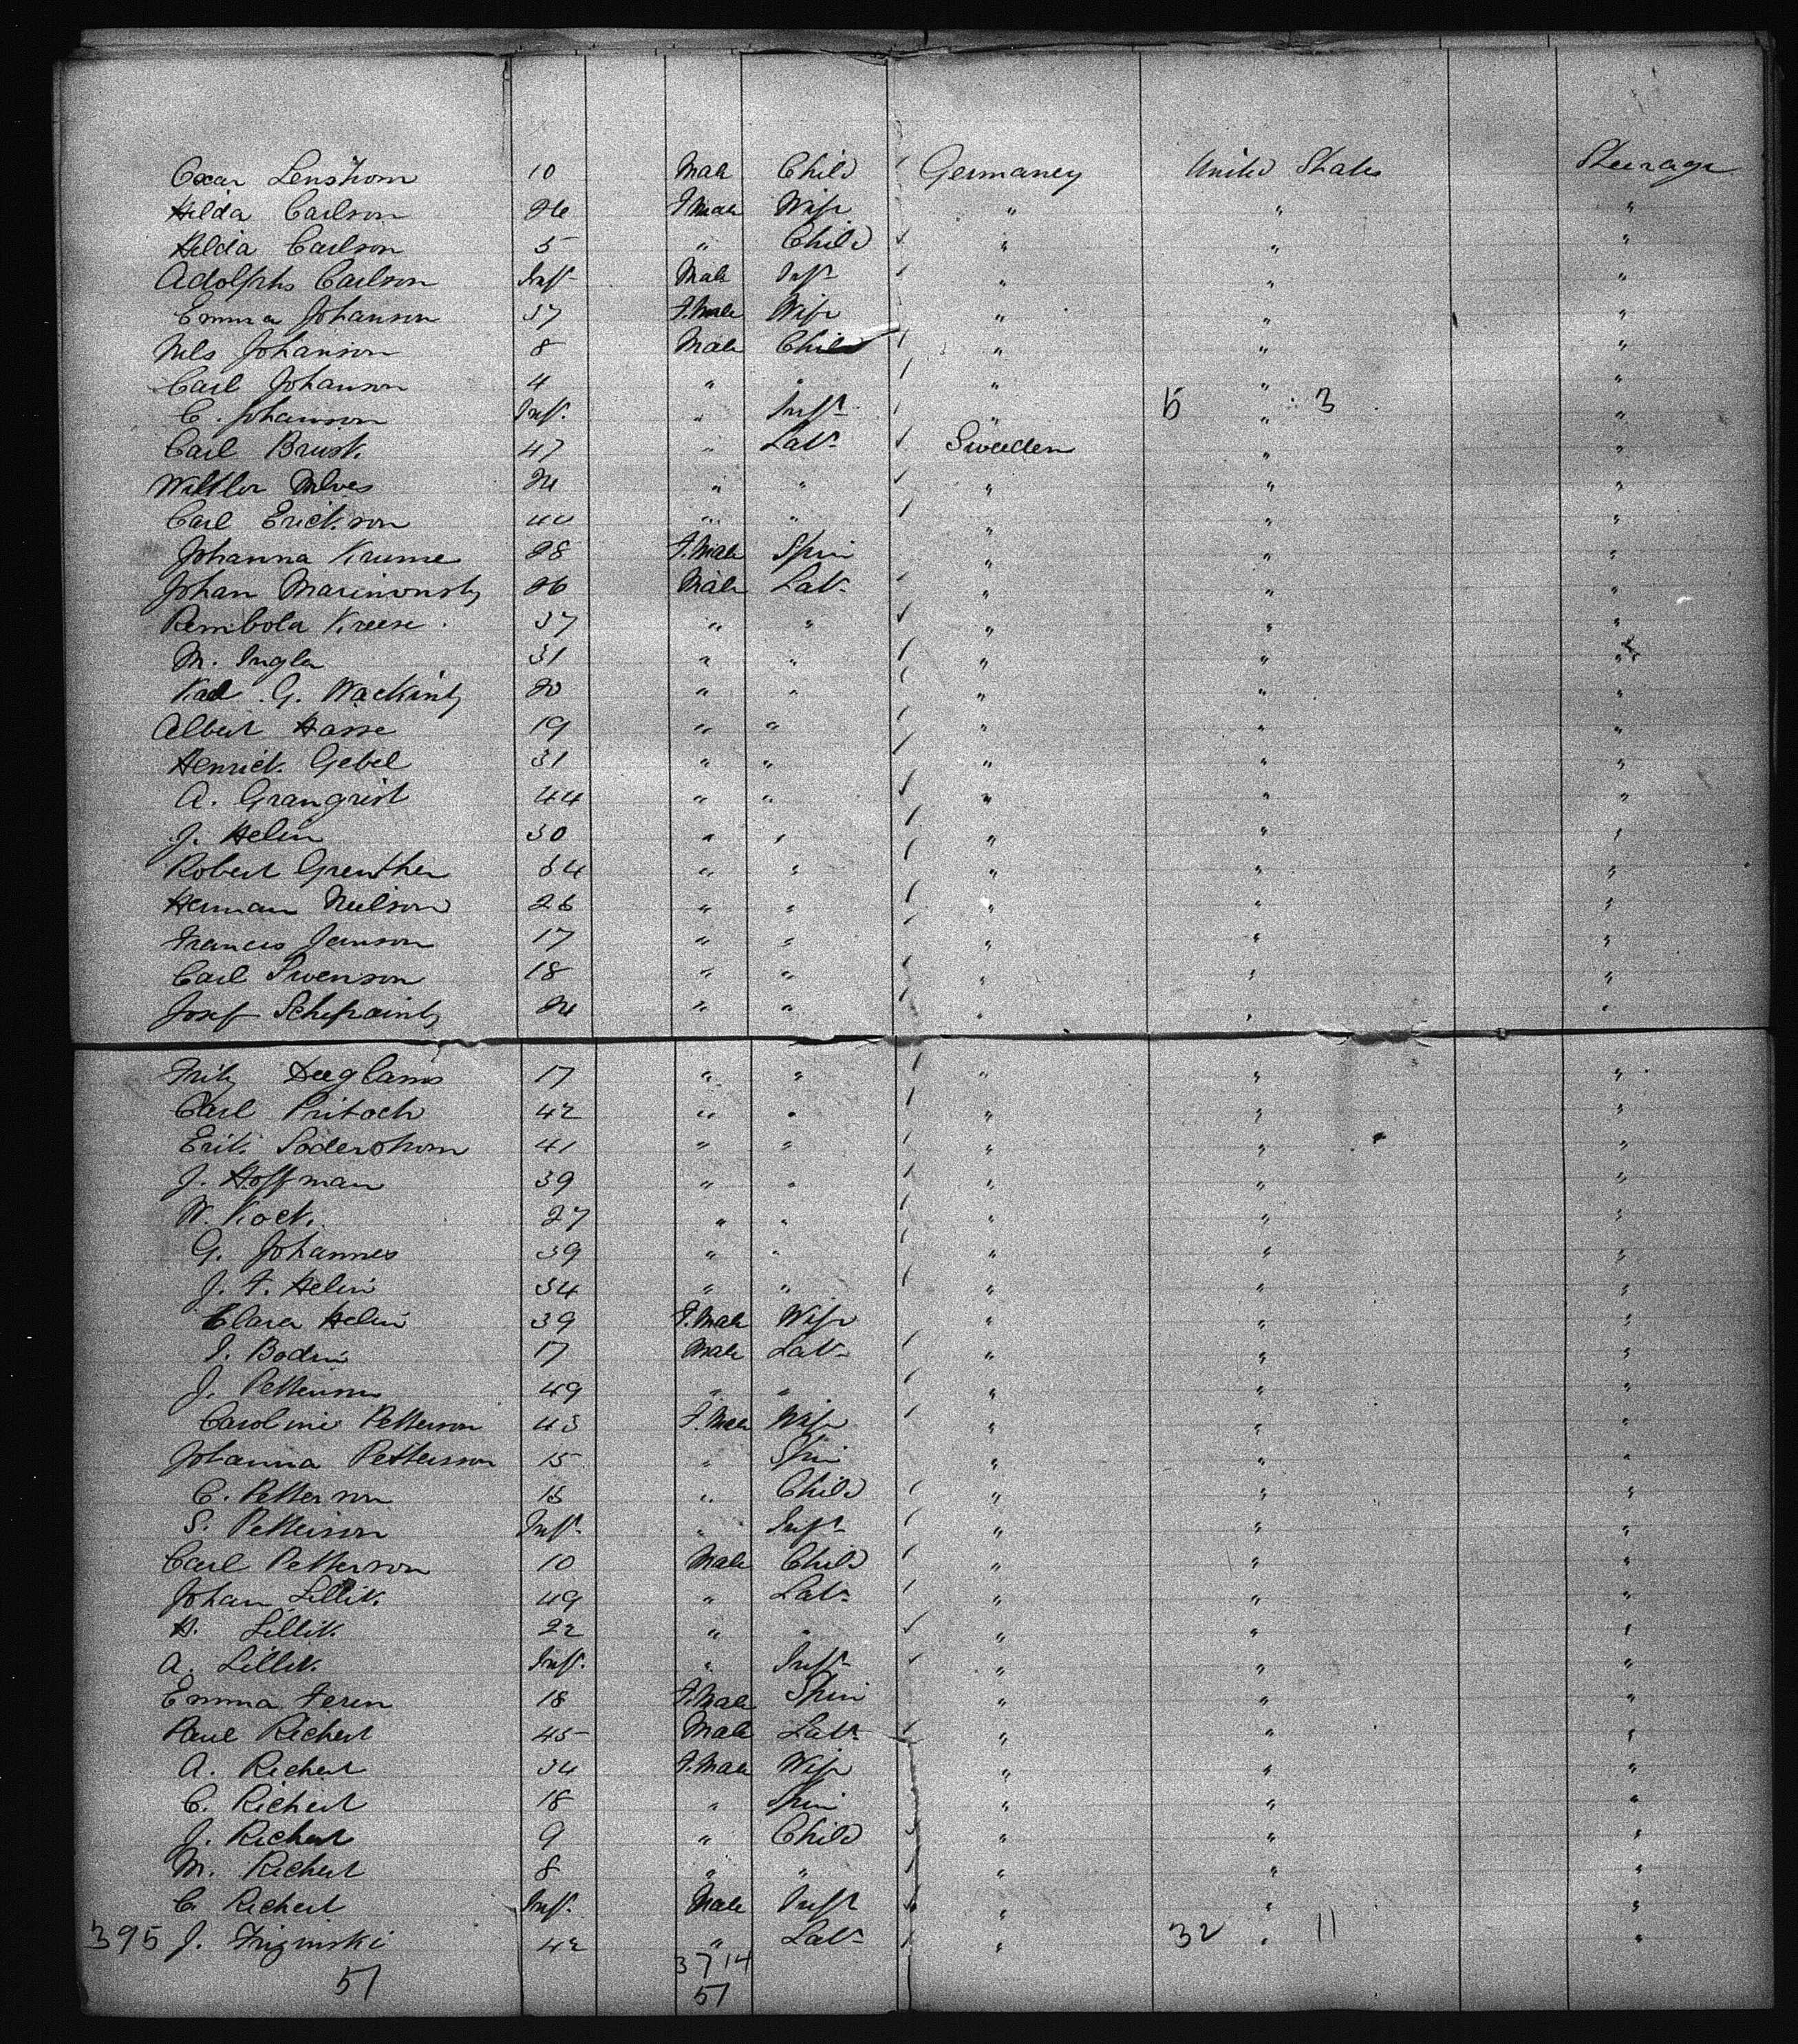 Oscar Lenstrom 10 Male Child Germaney United States Steerage
Hilda Carlson 26 F.Male Wife " " "
Hilda Carlson 5 " Child " " "
Adolphs Carlson Inft. Male Inft " " "
Emma Johanson 37 F.Male Wife " " "
Nels Johanson 8 Male Child " " "
Carl Johanson 4 " " " " "
C. Johanson Inft. " Inft " 5 " 3 "
Carl Brust. 47 " Labr Sweeden " "
24 " " " " "
Carl Erickson 40 " " " " "
Johanna Krume 28 F.Male Spin " " "
Johan 26 Male Labr " " "
Kreese 37 " " " " "
M. Ingler 31 " " " " "
G. 20 " " " " "
Albert Hasse 19 " " " " "
Henrick Gebel 31 " " " " "
A. Granqrist 44 " " " " "
J. Helin 30 " " " " "
Robert Grenther 34 " " " " "
Herman Neilson 26 " " " " "
Francis Janson 17 " " " " "
Carl Swenson 18 " " " " "
Josef 24 " " " " "
Fritz 17 " " " " "
Carl Pritoch 42 " " " " "
Erik Soderstrom 41 " " " " "
J. Hoffman 39 " " " " "
W. Kock. 27 " " " " "
G. Johannes 39 " " " " "
J. F. Helin 34 " " " " "
Clara Helin 39 F.Male Wife " " "
Bodin 17 Male Labr " " "
J. Petterson 49 " " " " "
Caroline Petterson 43 F.Male Wife " " "
Johanna Petterson 15 " Spin " " "
C. Petterson 13 " Child " " "
S. Petterson Inft. " Inft " " "
Carl Petterson 10 Male Child " " "
Johan Lillik. 49 " Labr " " "
H. Lillik. 22 " " " " "
A. Lillik. Inft. " Inft " " "
Emma Feren 18 F.Male Spin " " "
Paul Richert 45 Male Labr " " "
A. Richert 34 F.Male Wife " " "
C. Richert 18 " Spin " " "
J. Richert 9 " Child " " "
M. Richert 8 " " " " "
C. Richert Inft. Male Inft " " "
395 J. Frizinski 42 " Labr " 32 " 11 "
51 37 14
51